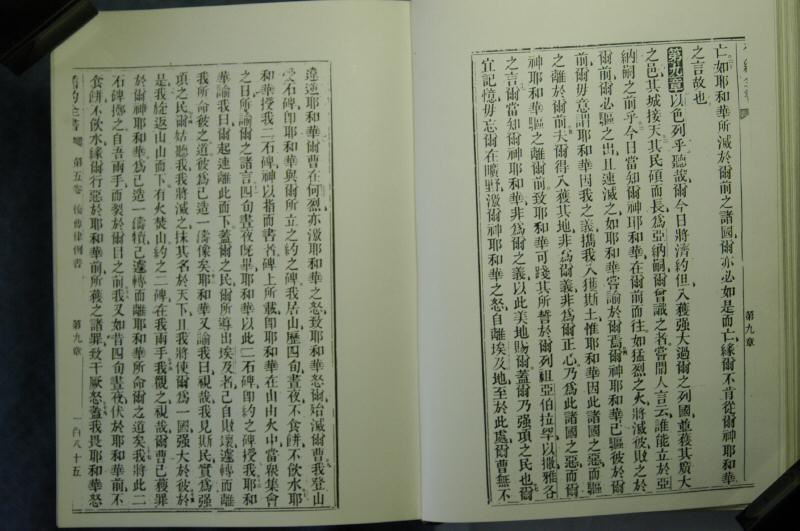 亡如耶和華所滅於爾前之諸國爾亦必如是而亡緣爾不肯從爾神耶和華
之言故也
第九章以色列乎聽哉爾今日將濟約但入獲强大過爾之列國並獲其廣大
之邑其城接天其民碩而長為亞納嗣爾曾識之者嘗聞人言云誰能立於亞
納嗣之前乎今日當知爾神耶和華在爾前而往如猛烈之火將滅彼敗之於
爾前爾必驅之出且速滅之如耶和華嘗諭於爾焉爾神耶和華已驅彼於爾
前爾毋意謂耶和華因我之義攜我入獲斯土惟耶和華因此諸國之惡而驅
之離於爾前夫爾得入獲其地非為爾義非為爾正心乃為此諸國之惡而爾
神耶和華驅之離爾前致耶和華可踐其所誓於爾列祖亞伯拉罕以撒雅各
之言爾當知爾神耶和華非為爾之義以此美地賜爾蓋爾乃强項之民也爾
宜記憶毋忘爾在曠野激爾神耶和華之怒自離埃及地至於此處爾曹無不
第九章
違逆耶和華爾曹在何烈亦激耶和華之怒致耶和華怒爾殆滅爾曹我登山
受石碑即耶和華與爾所立之約之碑我居山歷四旬晝夜不食餅不飲水耶
和華授我二石碑神以指而書者碑上所載即耶和華在山由火中當衆集會
之日所諭爾之諸言四旬晝夜既畢耶和華以此二石碑即約之碑授我耶和
華諭我曰爾起速離此而下蓋爾之民爾所導出埃及者己自敗壞遽轉而離
我所命彼之道彼為己造一鑄像矣耶和華又諭我曰視哉我見斯民實為强
項之民爾姑聽我我將滅之抹其名於天下且我將使爾為一國强大於彼於
是我旋返山山而下有火焚山約之二碑在我兩手我觀之視哉爾曹已獲罪
於爾神耶和華為己造一鑄犢己遽轉而離耶和華所命爾之道矣我將此二
石碑擲之自吾兩手而裂於爾目之前我又如昔四旬晝夜伏於耶和華前不
食餅不飲水緣爾行惡於耶和華前所獲之諸罪致干厥怒蓋我畏耶和華怒
舊約全書 第五卷 復傳律例書 第九章 一百八十五